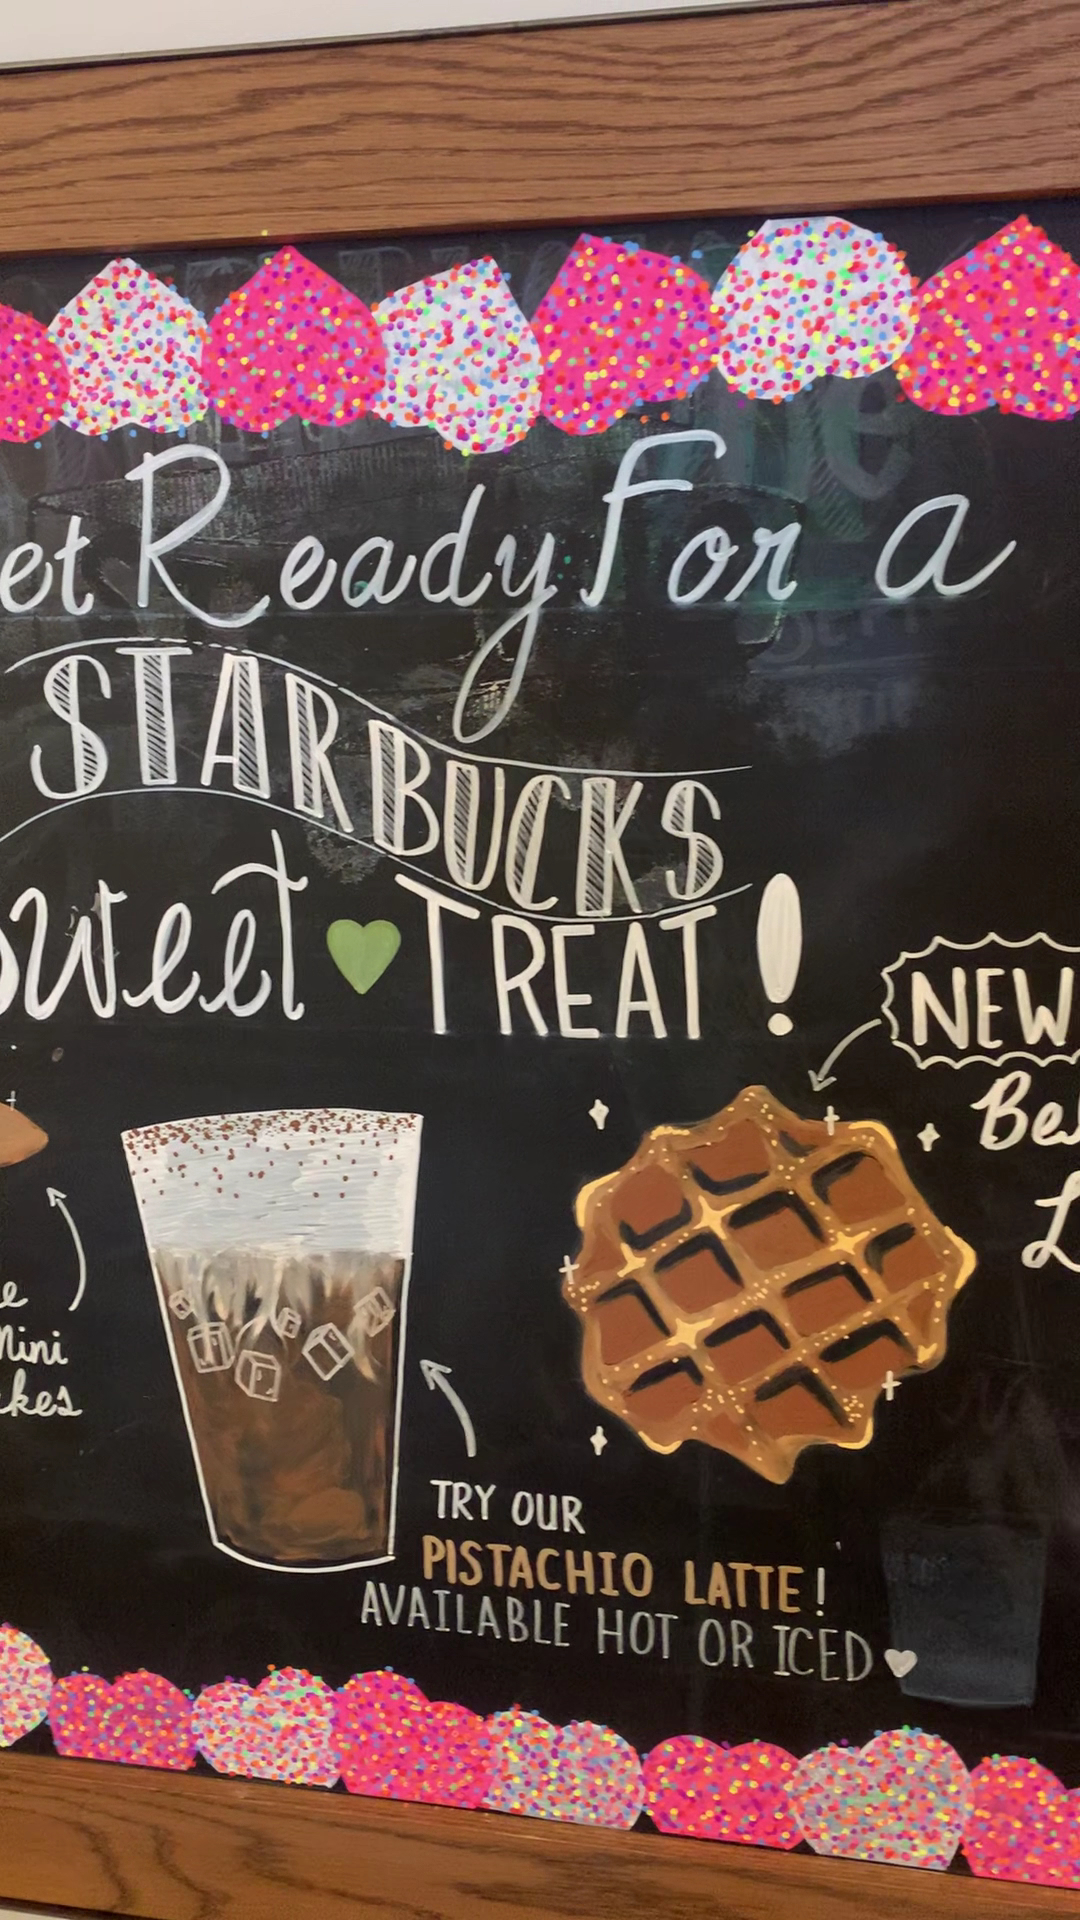 et Ready For a
STARBUCKS
Sweet TREAT!
NEW
Be
L
e
Mini
kes
TRY OUR
PISTACHIO LATTE!
AVAILABLE HOT OR ICED